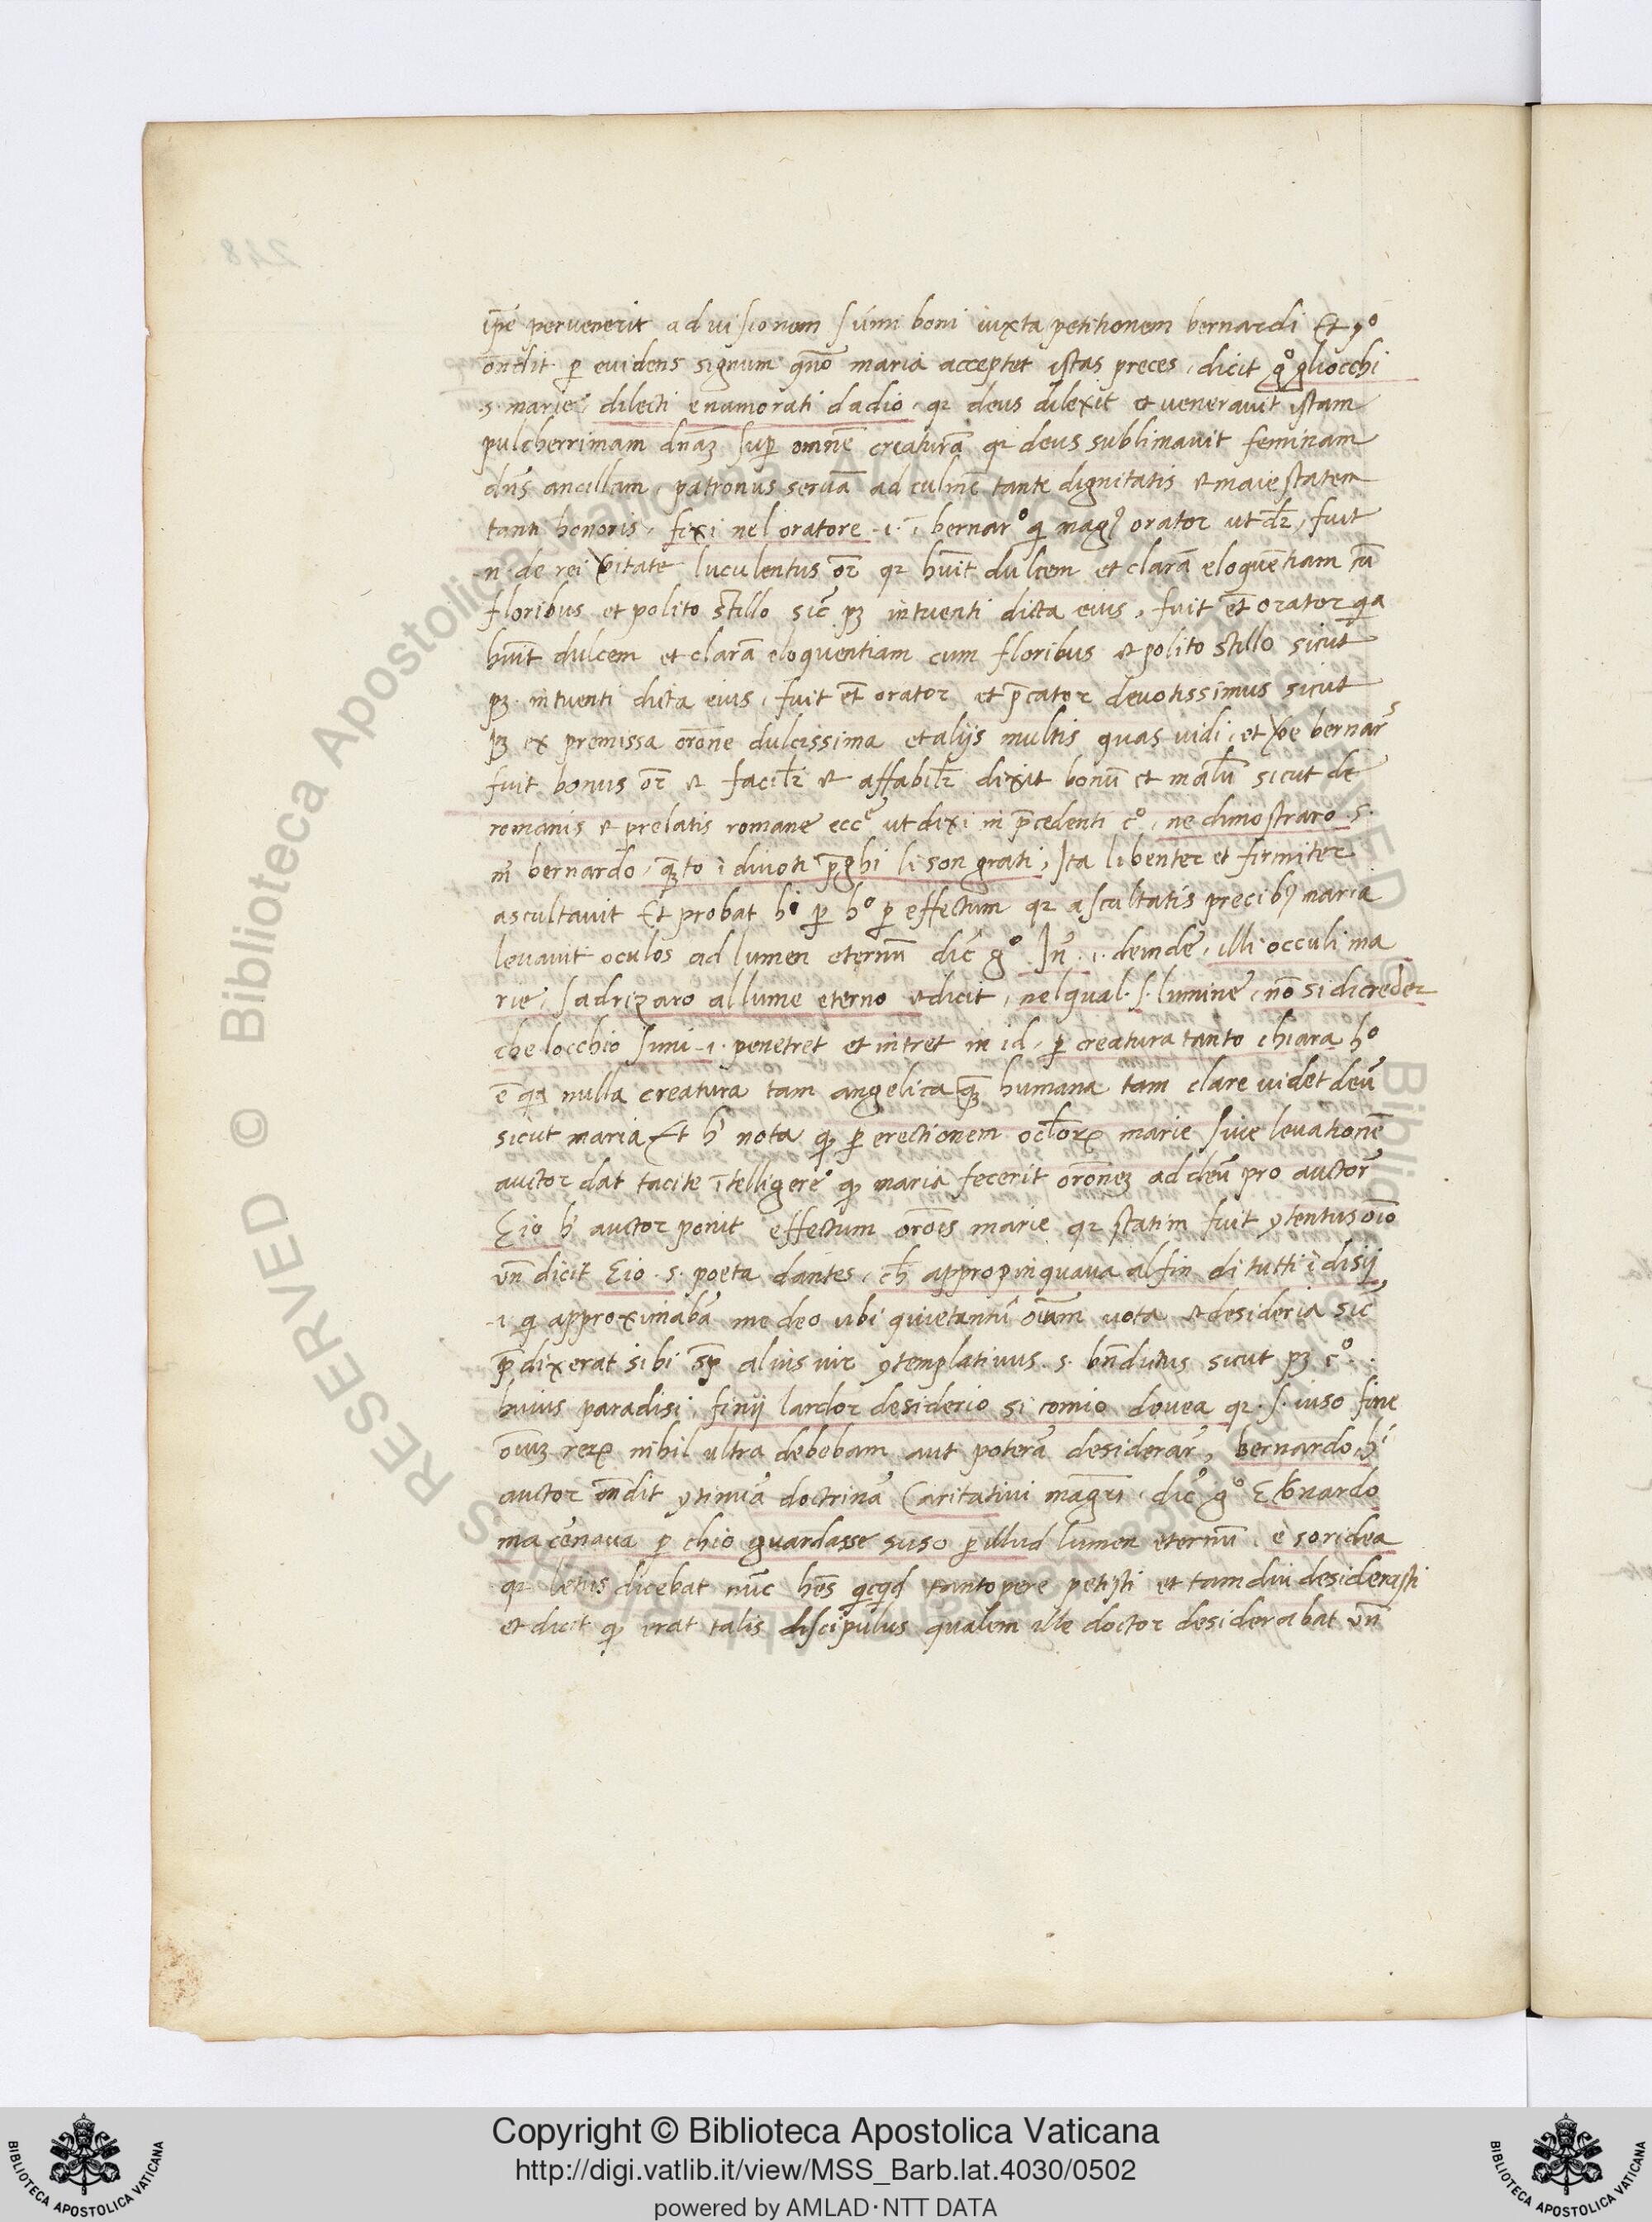 ip̄e pervenerit ad visionem sūmi boni iuxta petitionem bernardi Et 9º
ondit p evidens signum quō maria acceptet istas preces, dicit gº gliocchi
.s. marie, dilecti e namorati dadio, qz deus dilexit et veneravit istam
pulcherrimam dnāz sup omnē creaturā qz deus sublimavit feminam
dn̄s ancillam, patronus servā ad culmē tante dignitatis et maiestatem
tanti honoris, fixi nel oratore .i. ī bernarº q mag9 orator ut dr̄, fuit
.n. de rei vitate luculentus or̄ qz huīt dulcem et clarā eloquentiam cū
floribus et polito stillo sic̄ pz intuenti dicta eius, fuit et̄ orator qa
huīt dulcem et clarā eloquentiam cum floribus et polito stillo sicut
pz intuenti dicta eius, fuit et̄ orator et p̄cator devotissimus sicut
pz ex premissa orōne dulcissima et alijs multis quas vidi, et vē bernars
fuit bonus or̄ et facilr̄ et affabilr̄ dixit bonū et malū sicut de
romanis et prelatis romane ecce ut dixi in p̄cedenti cº, ne dimostraro .s.
m̄ bernardo, quāto i divoti p̄ghi li son grati, Ita libenter et firmiter
ascultavit Et probat hº p hº p effectum qz ascultatis precib9 maria
levavit oculos ad lumen eternū dic̄ gº In̄ .i. deinde, illi occuli ma
rie, sadrizaro allume eterno et dicit, nelqual .s. lumine, nō si dicreder
che locchio simi .i. penetret et intret in id, p creatura tanto chiara hº
ē qa nulla creatura tam angelica quā humana tam clare videt deū
sicut maria Et h̄ nota q p erectionem oclorꝝ marie sive levationē
auctor dat tacite ītelligere q maria fecerit orōnez ad deū pro auctore
Eio h̄ auctor ponit effectum orōis marie qz statim fuit 9tentus oīo
vn̄ dicit Eio .s. poeta dantes, ch̄ appropinquava alfin di tutti i disij
.i. q approximabā me deo ubi quietantū oīum vota et desideria sic̄
p̄dixerat sibi sp̄ alius vir 9templativus .s. bn̄dictus sicut pz cº .
huius paradisi, finij lardor desiderio si comio dovea qz .s. iuso fine
oīuz rerꝝ nihil ultra debebam aut poterā desiderare, bernardo h̄
auctor ondit 9timuā doctrinā Caritativi magr̄i, dic̄ gº Ebernardo
macenava p chio guardasse suso p illud lumen eternū, e soridea
qz letus dicebat nūc hēs qcqd tantopere petisti et tamdiu desiderasti
et dicit q erat talis discipulus qualem ille doctor desiderabat vn̄
Copyright © Biblioteca Apostolica Vaticana
http://digi.vatlib.it/view/MSS_Barb.lat.4030/0502
powered by AMLAD·NTT DATA